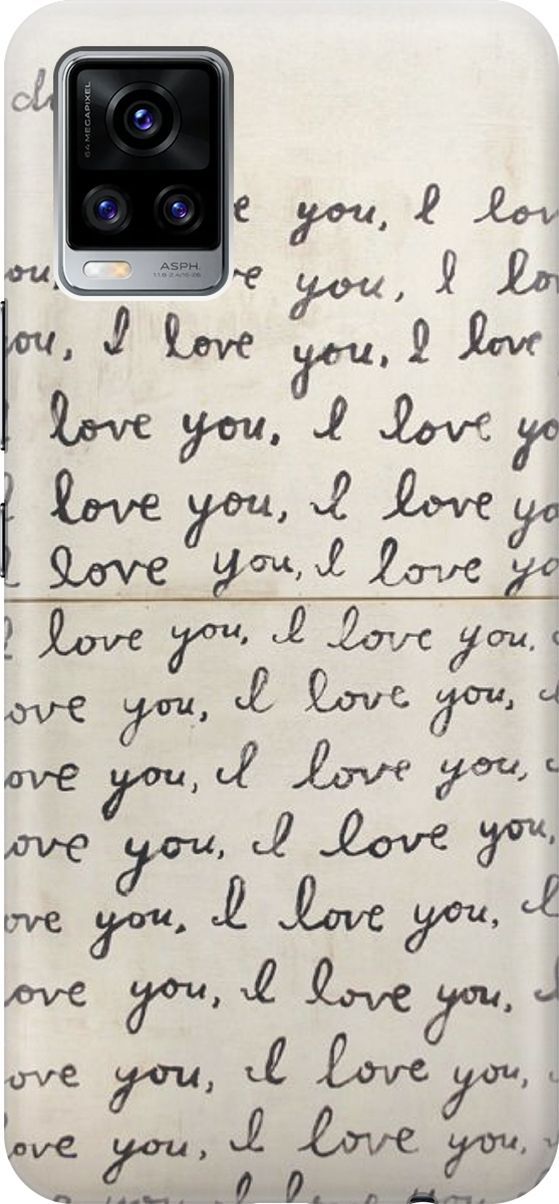 64 MEGAPIXEL
ASPH.
you, I lov
you, I lo
you, I love you, I love
love you, I love yo
I love you, I love yo
I love you, I love yo
I love you, I love you,
ove you, I love you,
ove you, I love you,
ove you, I love you,
ove you, I love you, I
ove you, I love you, I
ove you, I love you,
ove you, I love you,
you I love you